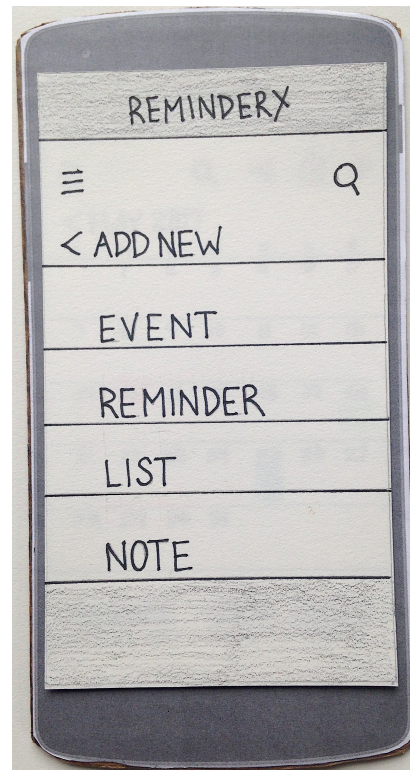 REMINDERX
< ADD NEW
EVENT
REMINDER
LIST
NOTE